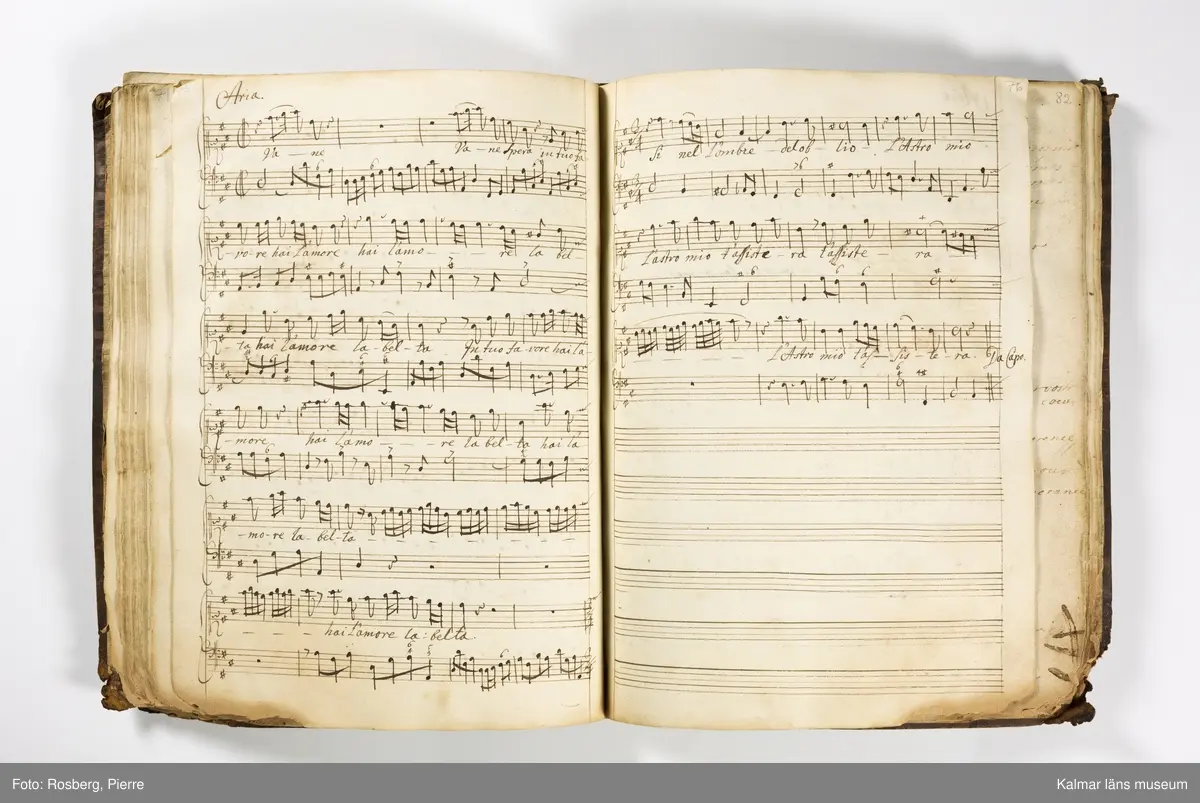 Aria.
Va — ne Va — ne spera in tuo fa
— vo-re hai l'amore hai l'amo - - - re la bel-
- ta hai l'amore la-bel-ta In tuo favore hai l'a-
- more hai l'amo - - - re la bel-ta hai la
- mo-re la-bel-ta - - - - - - - -
- - - - hai l'amore la:belta.
82
Si nel l'ombre - del ob - lio - L'Astro mio
L'astro mio t'assiste - ra t'assiste - ra
- - - - - - L'Astro mio t'as - sis - te - ra. Da Capo.
Foto: Rosberg, Pierre
Kalmar läns museum